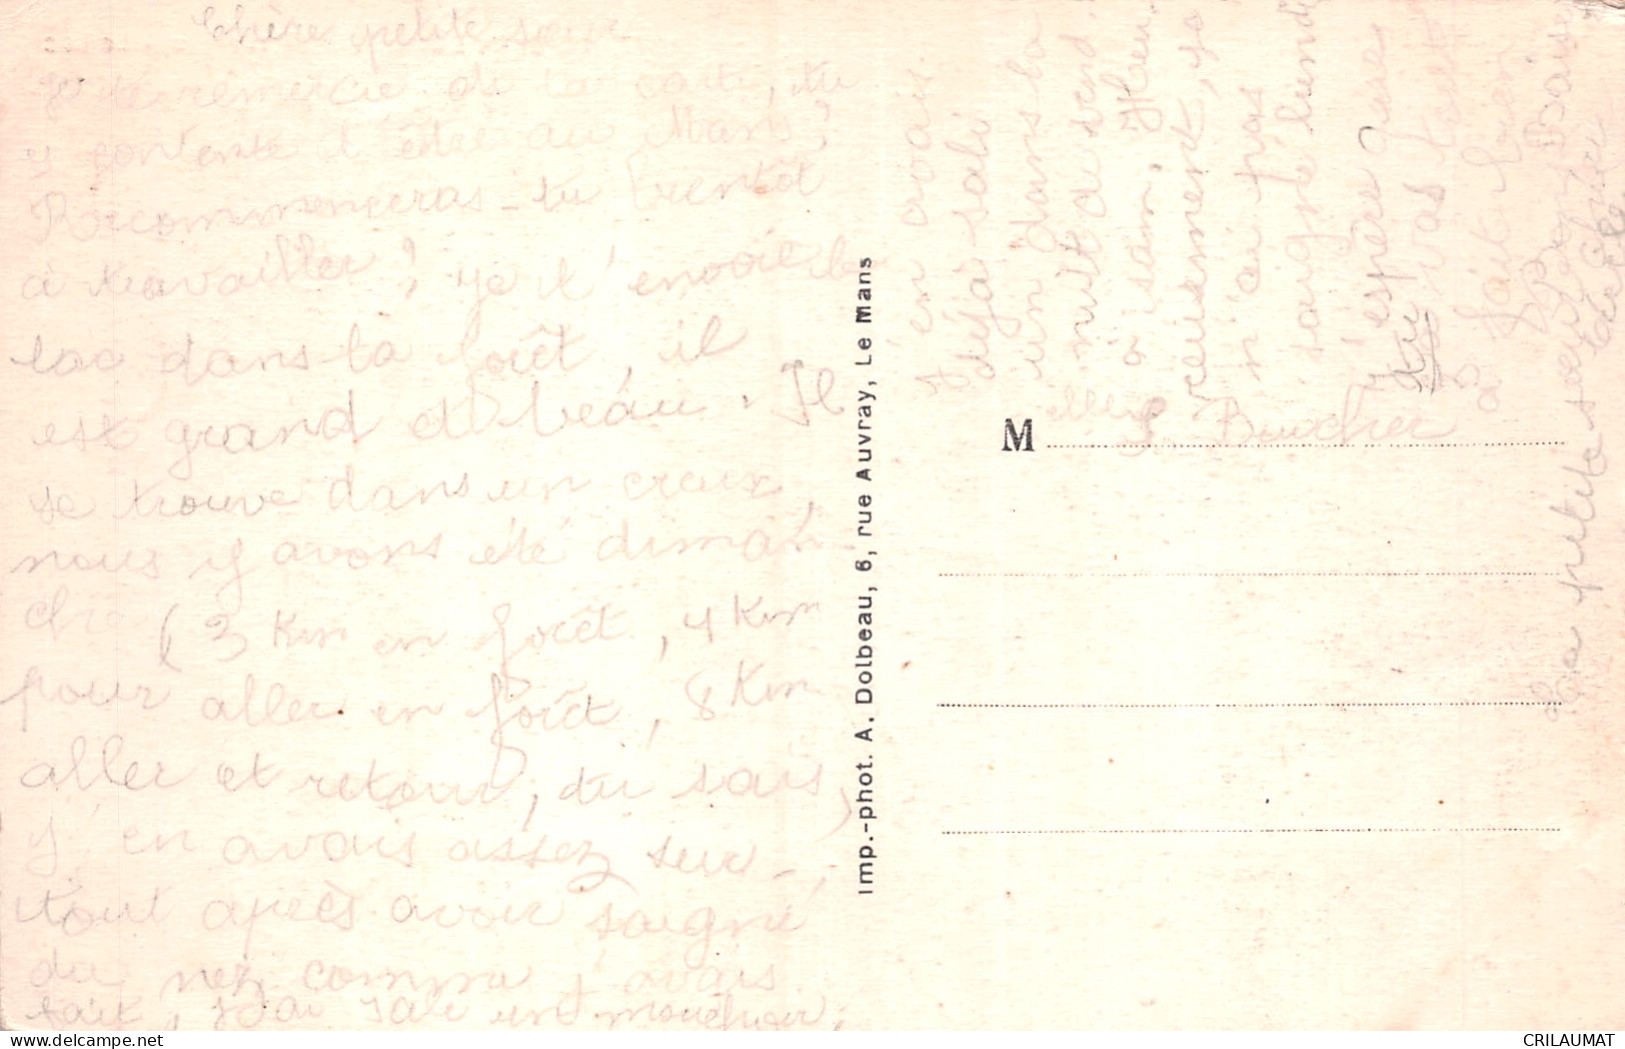 Chère petite sœur
Je te remercie de la carte, tu
y contente d'être au Mans?
Recommenceras-tu bientôt
à travailler? je t'envoie le
lac dans la forêt, il
est grand et beau. Il
se trouve dans un creux,
nous y avons été diman
che (3 Km en forêt, 4 Km
pour aller en forêt, 8 Km
aller et retour, tu sais,
j'en avais assez sur-
tout après avoir saigné
du nez comme j'avais
fait, j'ai sali un mouchoir,
j'en avais
déjà sali
un dans la
nuit de vend.
à sam. Heu-
reusement, je
n'ai pas
saigné lundi
J'espère que
tu vas tout
à fait bien
Bons Baisers
Ta petite sœur chérie
Cécile
M elle Boucher
Imp.-phot. A. Dolbeau, 6, rue Auvray, Le Mans
delcampe.net
CRILAUMAT